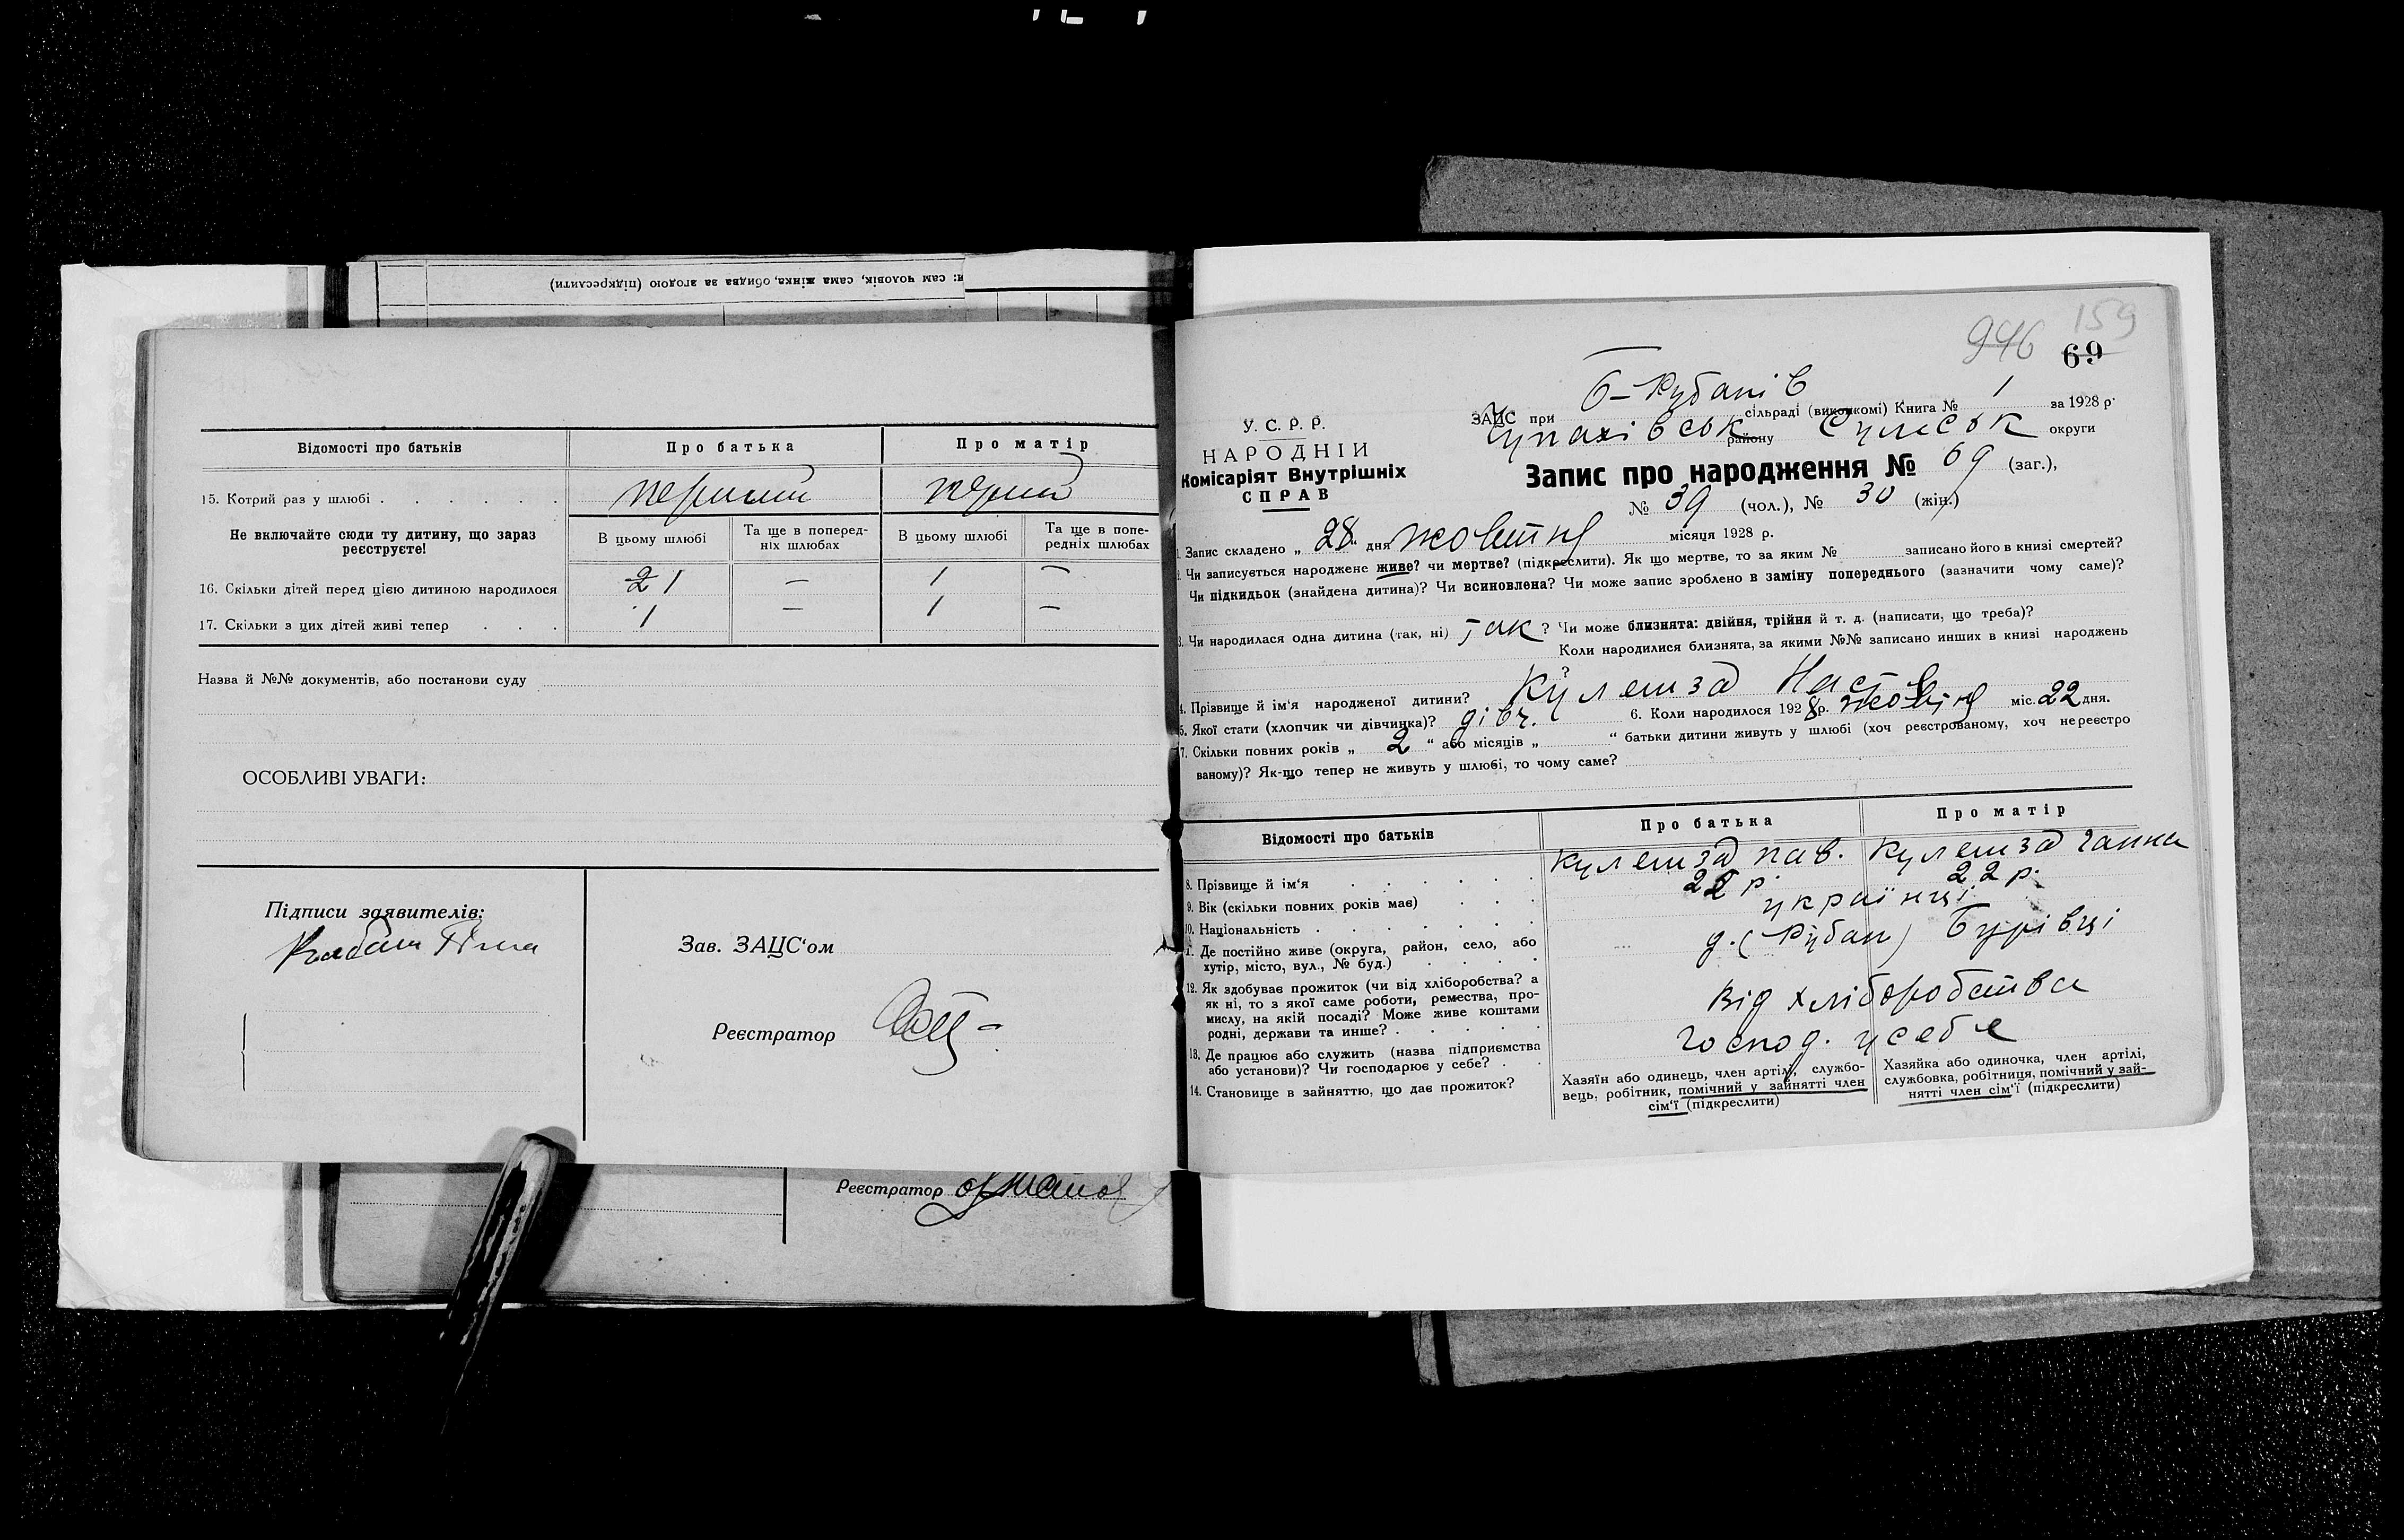 и: сам чоловік, сама жінка, обидва за згодою (підкреслити)
Відомості про батьків
Про батька
Про матір
15. Котрий раз у шлюбі
перший
перший
Не включайте сюди ту дитину, що зараз реєструєте!
В цьому шлюбі
Та ще в поперед-
ніх шлюбах
В цьому шлюбі
Та ще в попе-
редніх шлюбах
16. Скільки дітей перед цією дитиною народилося
2 1 — 1 —
17. Скільки з цих дітей живі тепер
1 — 1 —
Назва й №№ документів, або постанови суду
ОСОБЛИВІ УВАГИ:
Підписи заявителів:
Зав. ЗАЦС'ом
Реєстратор
Реєстратор
946 159
69
У. С. Р. Р.
НАРОДНІЙ
Комісаріят Внутрішніх
СПРАВ
ЗАЦС при Б-Рубанів сільраді (виконкомі) Книга № 1 за 1928 р.
Чупахівськ району Сумськ округи
Запис про народження № 69 (заг.),
№ 39 (чол.), № 30 (жін.)
1. Запис складено „ 28 “ дня жовтня місяця 1928 р.
2. Чи записується народжене живе? чи мертве? (підкреслити). Як що мертве, то за яким № записано його в книзі смертей?
Чи підкидьок (знайдена дитина)? Чи всиновлена? Чи може запис зроблено в заміну попереднього (зазначити чому саме)?
3. Чи народилася одна дитина (так, ні) так ? Чи може близнята: двійня, трійня й т. д. (написати, що треба)?
Коли народилися близнята, за якими №№ записано инших в книзі народжень
?
4. Прізвище й ім'я народженої дитини? Кулешза Настя
5. Якої стати (хлопчик чи дівчинка)? дівч. 6. Коли народилося 1928 р. жовтня міс. 22 дня.
7. Скільки повних років „ 2 “ або місяців „ “ батьки дитини живуть у шлюбі (хоч реєстрованому, хоч нереєстро
ваному)? Як-що тепер не живуть у шлюбі, то чому саме?
Відомості про батьків
Про батька
Про матір
8. Прізвище й ім'я
Кулешза Пав.
Кулешза Ганна
9. Вік (скільки повних років має)
22 р.
22 р.
10. Національність
українці
11. Де постійно живе (округа, район, село, або
хутір, місто, вул., № буд.)
д. (Рубан) Бурівці
12. Як здобуває прожиток (чи від хліборобства? а
як ні, то з якої саме роботи, ремества, про-
мислу, на якій посаді? Може живе коштами
родні, держави та инше?
Від хліборобства
13. Де працює або служить (назва підприємства
або установи)? Чи господарює у себе?
господ. у себе
14. Становище в зайняттю, що дає прожиток?
Хазяїн або одинець, член артілі, службо-
вець, робітник, помічний у зайнятті член
сім'ї (підкреслити)
Хазяйка або одиночка, член артілі,
службовка, робітниця, помічний у зай-
нятті член сім'ї (підкреслити)